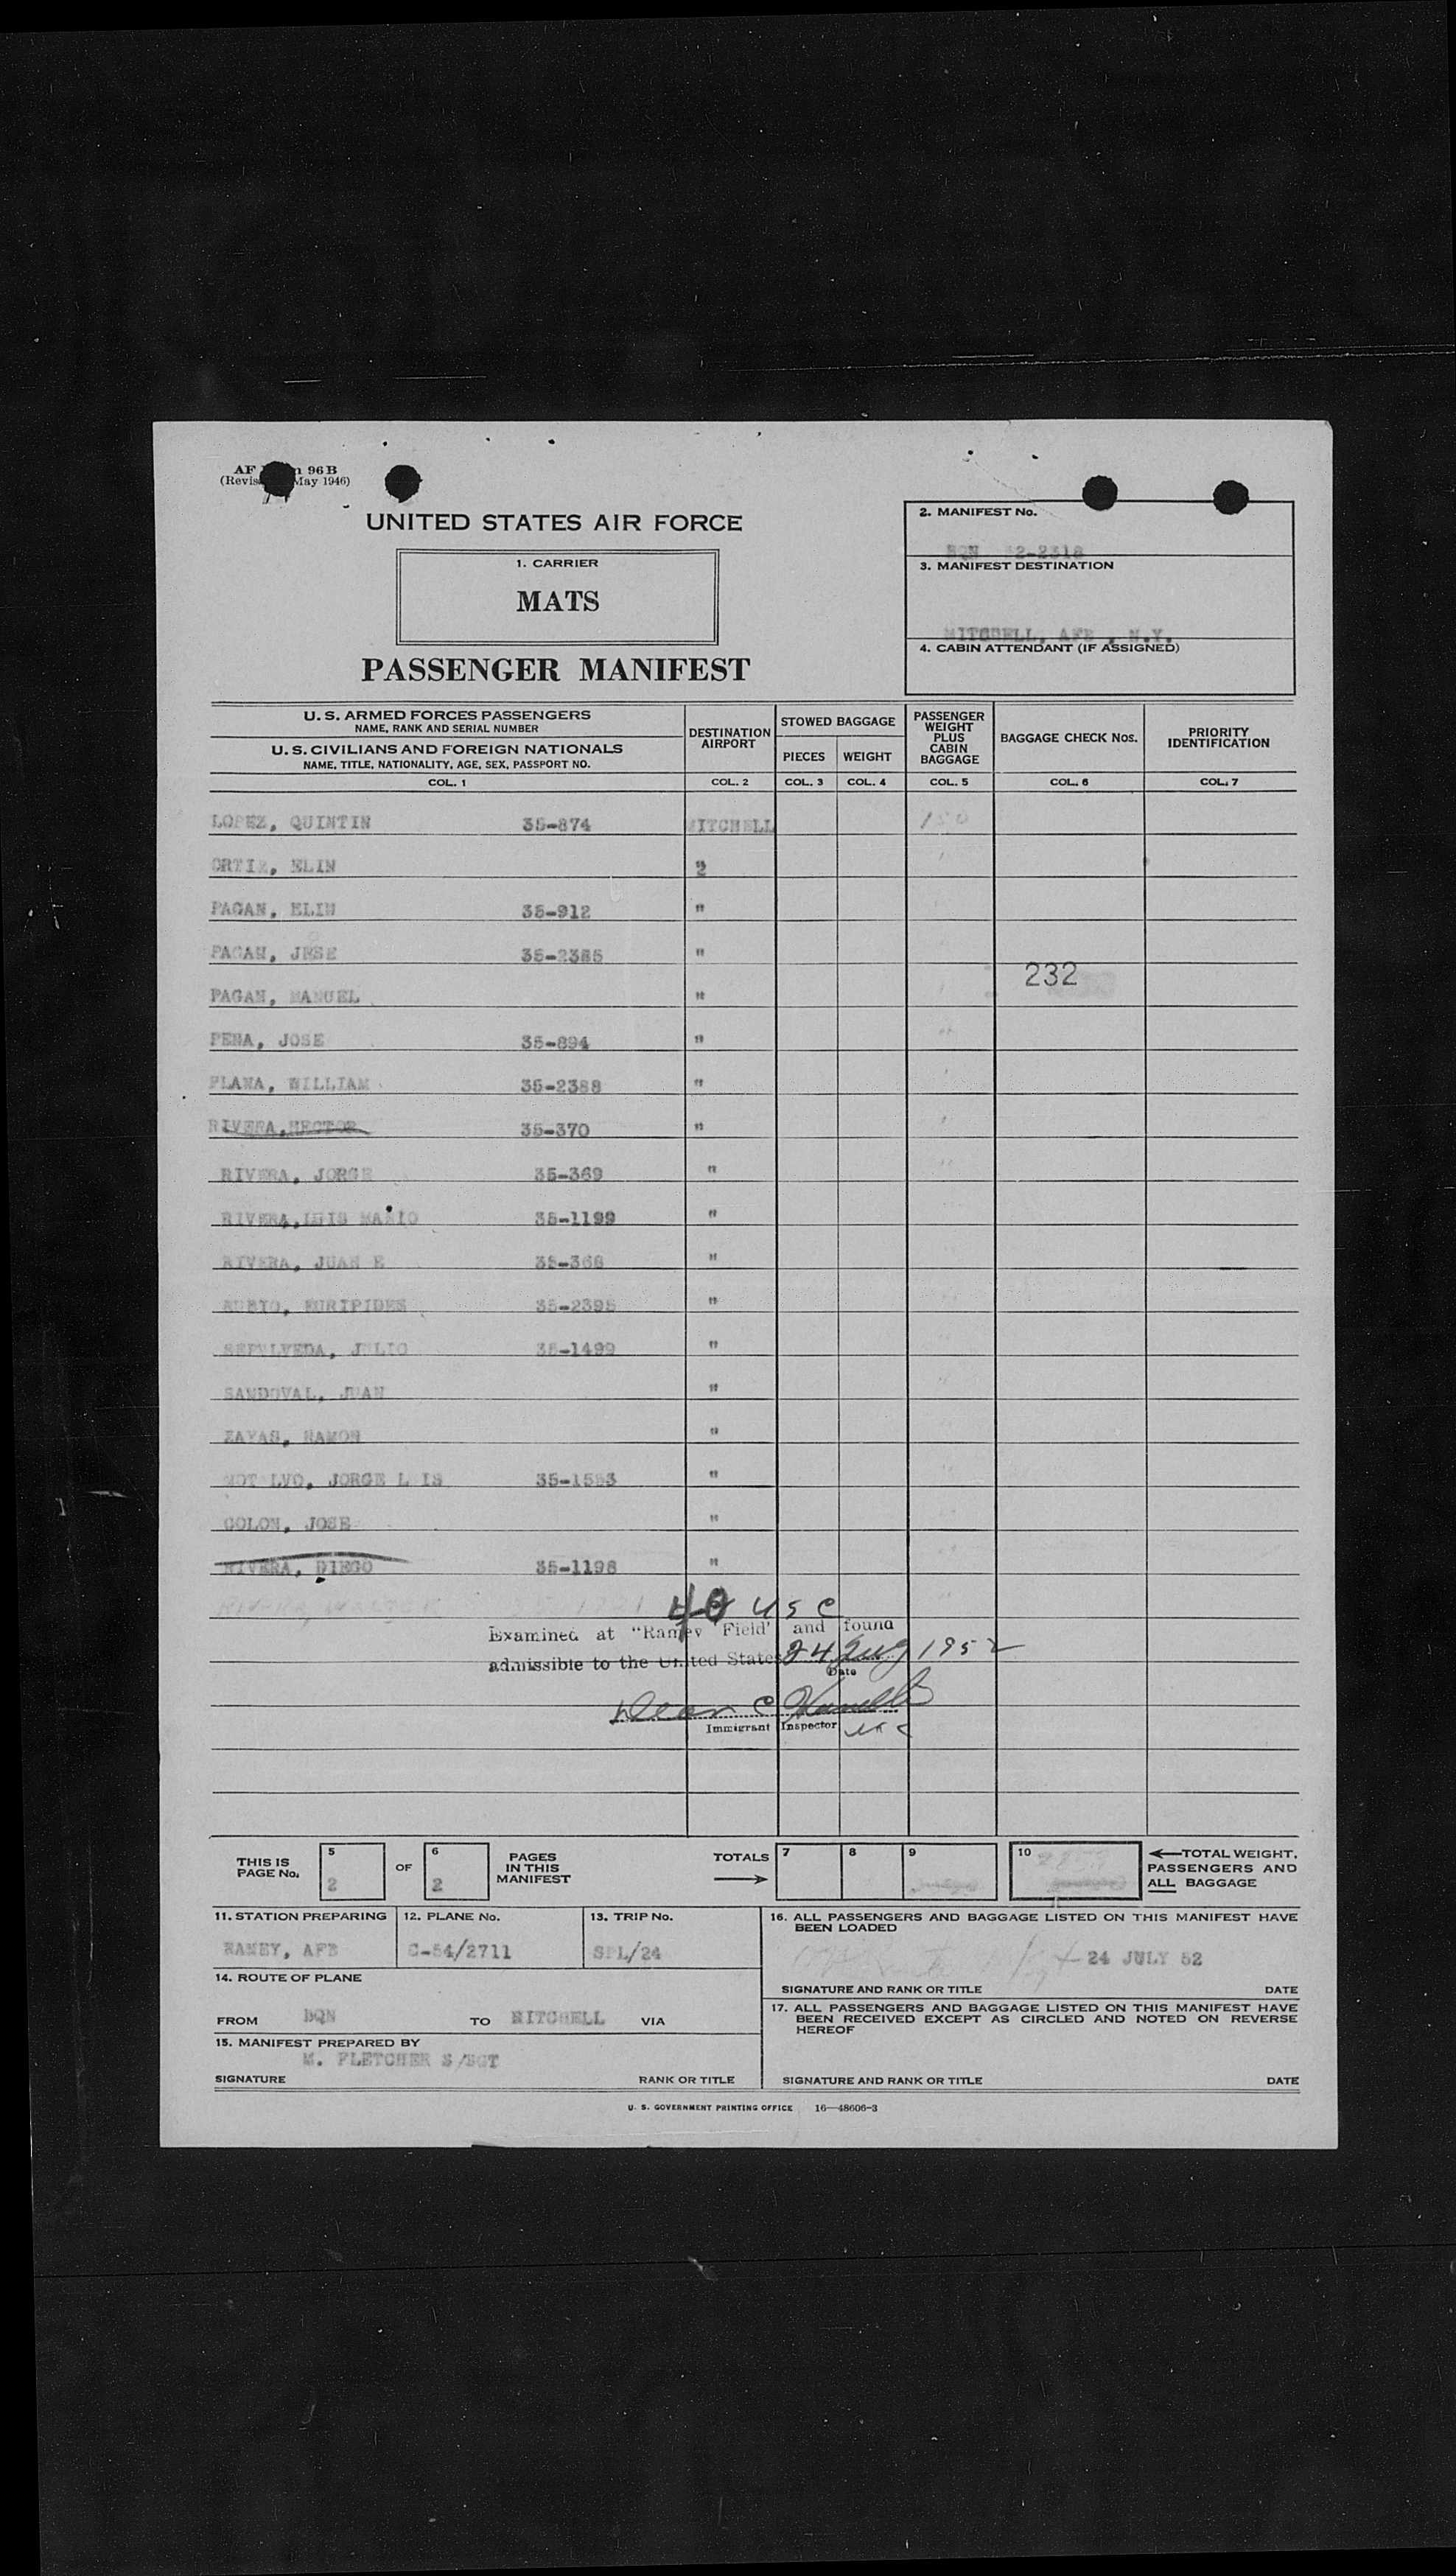 AF Form 96 B
(Revised May 1946)
UNITED STATES AIR FORCE
1. CARRIER
MATS
PASSENGER MANIFEST
2. MANIFEST No.
BQN 52-2318
3. MANIFEST DESTINATION
MITCHELL, AFB , N.Y.
4. CABIN ATTENDANT (IF ASSIGNED)
U. S. ARMED FORCES PASSENGERS
NAME, RANK AND SERIAL NUMBER
U. S. CIVILIANS AND FOREIGN NATIONALS
NAME, TITLE, NATIONALITY, AGE, SEX, PASSPORT NO.
COL. 1
DESTINATION AIRPORT
COL. 2
STOWED BAGGAGE
PIECES
COL. 3
WEIGHT
COL. 4
PASSENGER WEIGHT PLUS CABIN BAGGAGE
COL. 5
BAGGAGE CHECK Nos.
COL. 6
PRIORITY IDENTIFICATION
COL. 7
LOPEZ, QUINTIN 35-874 MITCHELL 150
ORTIZ, ELIN "
PAGAN, ELIN 35-912 "
PAGAN, JESE 35-2385 "
232
PAGAN, MANUEL "
PENA, JOSE 35-894 "
PLANA, WILLIAM 35-2388 "
RIVERA,HECTOR 35-370 "
RIVERA, JORGE 35-369 "
RIVERA,LUIS MARIO 35-1199 "
RIVERA, JUAN E 35-368 "
RUBIO, EURIPIDES 35-2395 "
SEPULVEDA, JULIO 35-1499 "
SANDOVAL, JUAN "
ZAYAS, RAMON "
MOTALVO, JORGE LUIS 35-1553 "
COLON, JOSE "
RIVERA, DIEGO 35-1198 "
40 U S C
Examined at "Ramey Field" and found
admissible to the United States 24 Aug 1952
Date
Dean C
Immigrant Inspector
THIS IS PAGE No.
5
2
OF
6
2
PAGES IN THIS MANIFEST
TOTALS
7
8
9
10
TOTAL WEIGHT, PASSENGERS AND ALL BAGGAGE
11. STATION PREPARING
RAMEY, AFB
12. PLANE No.
C-54/2711
13. TRIP No.
SPL/24
14. ROUTE OF PLANE
FROM BQN TO MITCHELL VIA
15. MANIFEST PREPARED BY
M. FLETCHER S/SGT
SIGNATURE RANK OR TITLE
16. ALL PASSENGERS AND BAGGAGE LISTED ON THIS MANIFEST HAVE
BEEN LOADED
24 JULY 52
SIGNATURE AND RANK OR TITLE DATE
17. ALL PASSENGERS AND BAGGAGE LISTED ON THIS MANIFEST HAVE
BEEN RECEIVED EXCEPT AS CIRCLED AND NOTED ON REVERSE
HEREOF
SIGNATURE AND RANK OR TITLE DATE
U. S. GOVERNMENT PRINTING OFFICE 16—48606-3